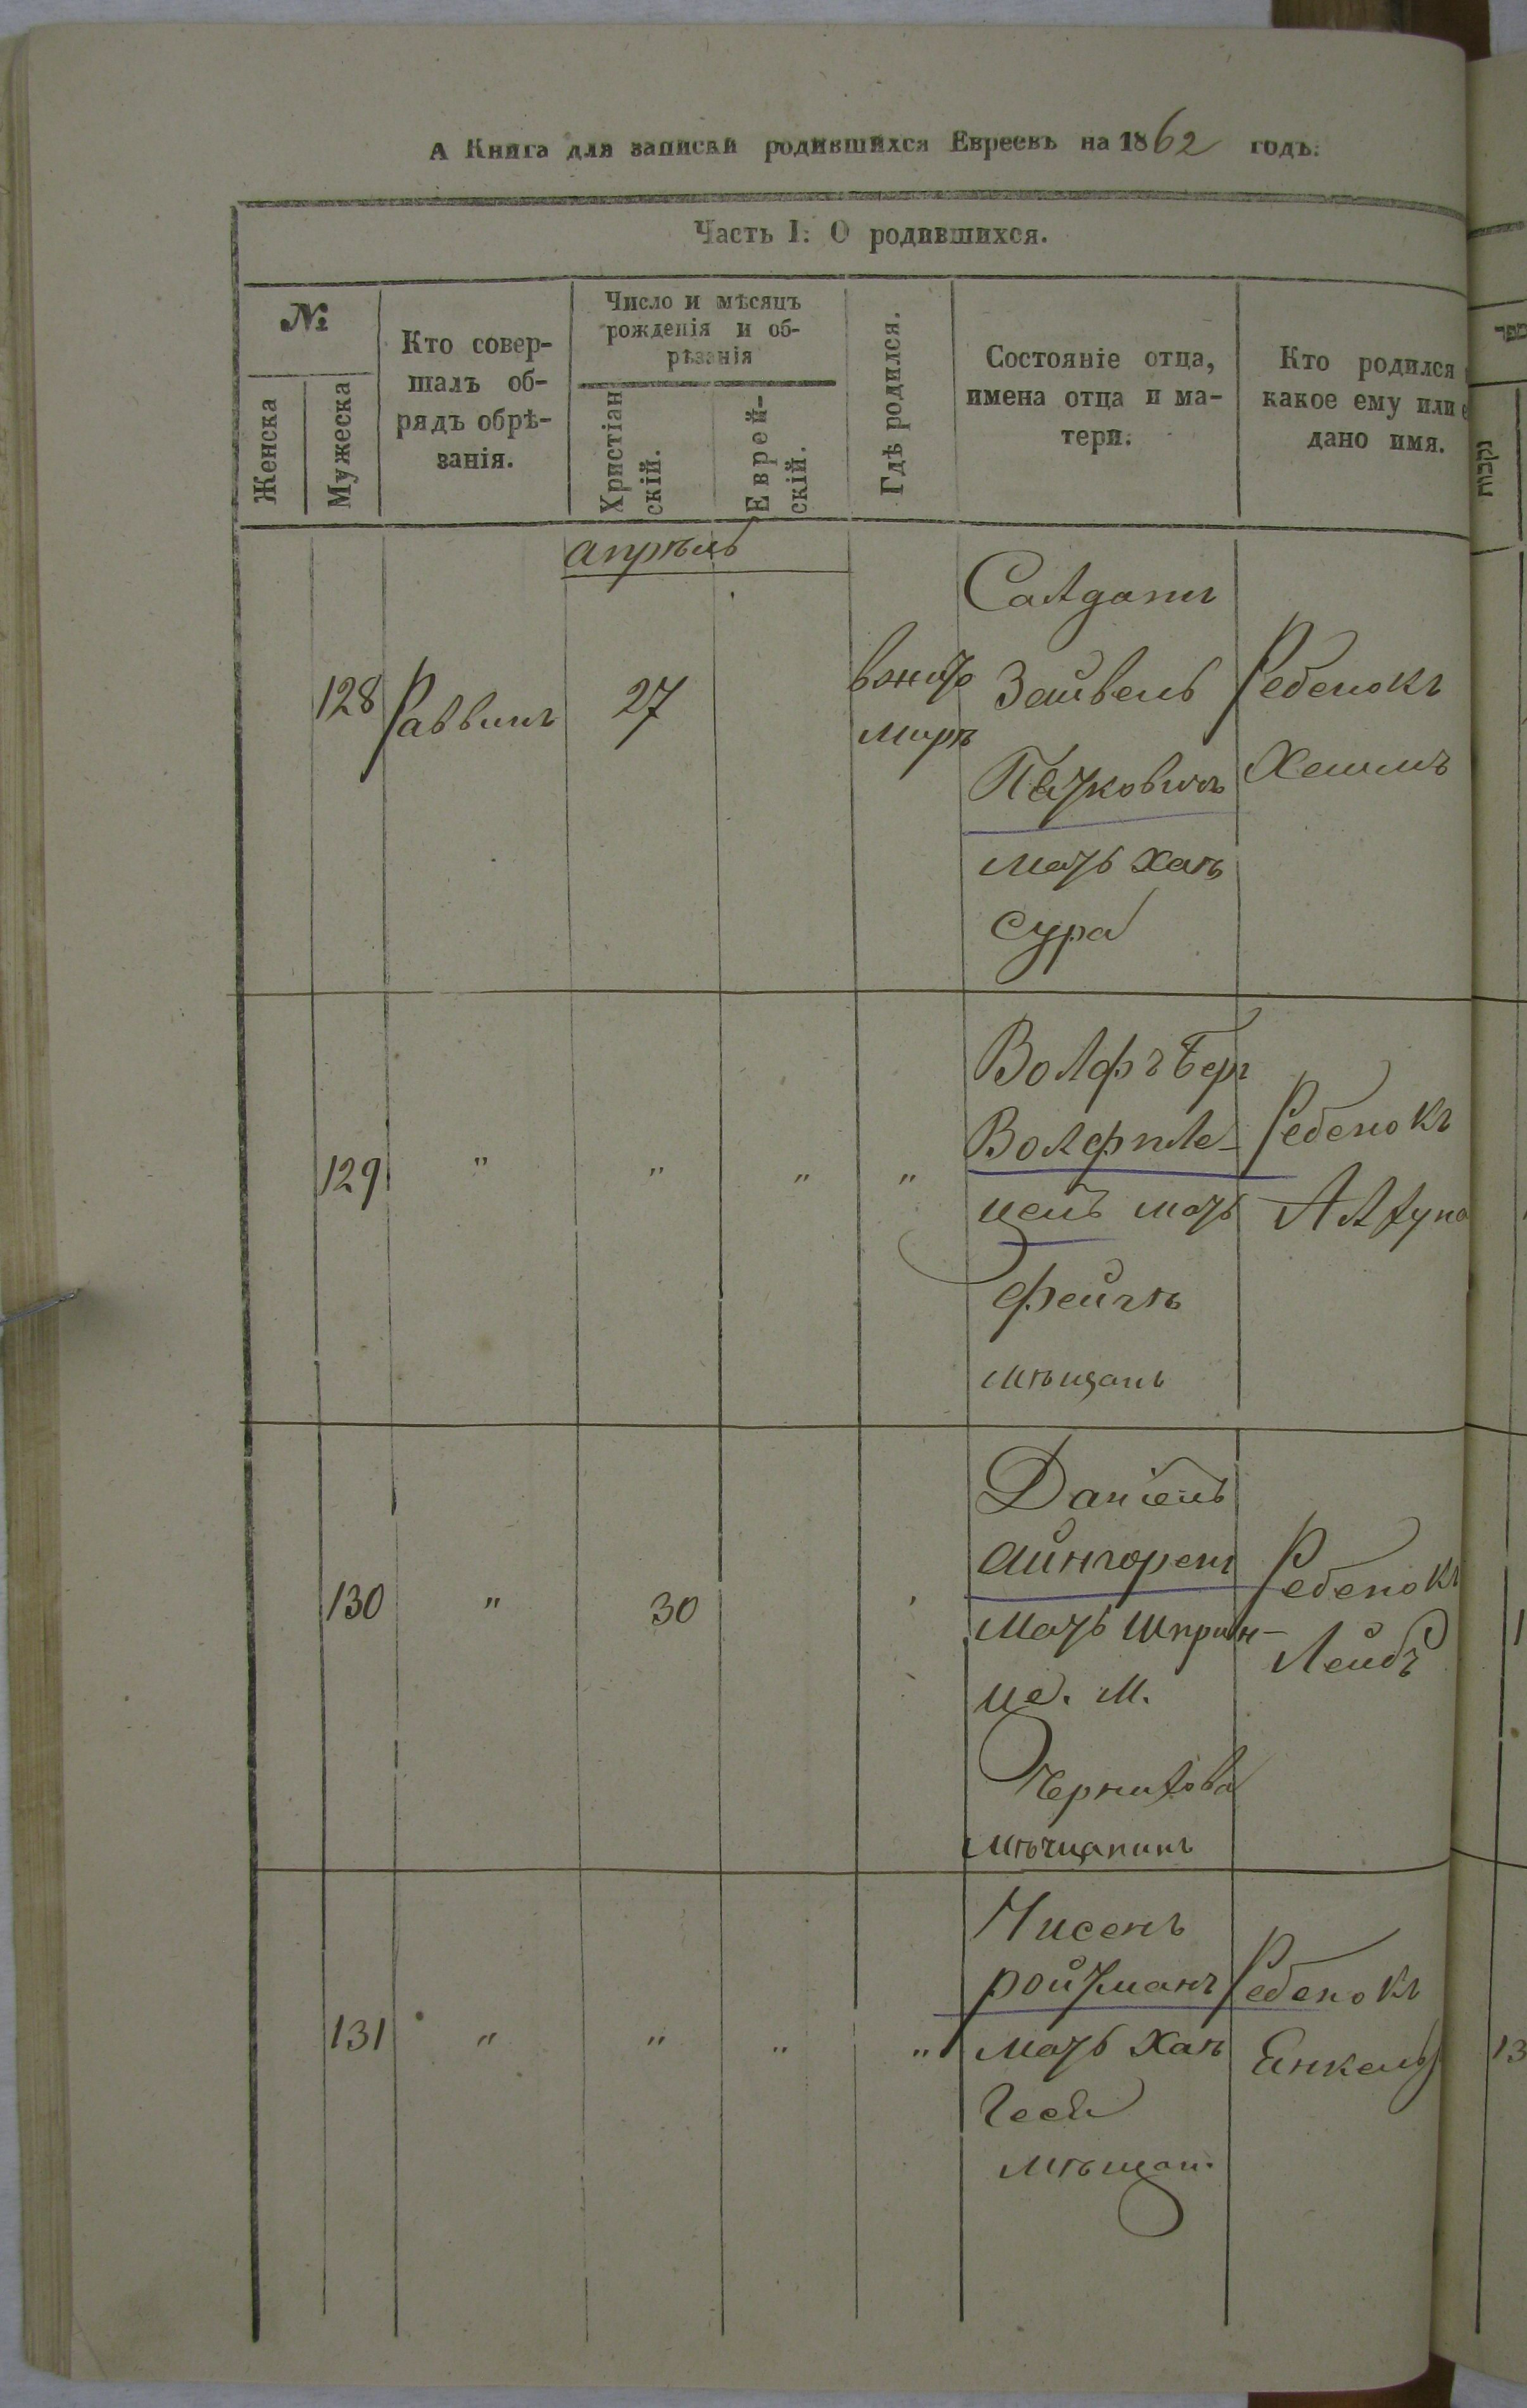 А Книга для записки родившихся Евреевъ на 1862 годъ.
Часть I. О родившихся.
№
Женска
Мужеска
Кто совер-
шалъ об-
рядъ обрѣ-
занія.
Число и мѣсяцъ
рожденія и об-
рѣзанія
Христіан
скій.
Еврей-
скій.
Гдѣ родился.
Состояніе отца,
имена отца и ма-
тери.
Кто родился
какое ему или е
дано имя.
апрѣль
128
Раввинъ
27
вжито
мирѣ
Салдатъ
Зайвель
мать Хая
Сура
Ребенокъ
Хаимъ
129
"
"
"
"
Волфъ Бер
Волфпле-
цель мать
Фейгѣ
мѣщанъ
Ребенокъ
130
"
30
Даніель
Айнгорен
мать Шприн-
це. М.
Чернихова
мѣщанинъ
Ребенокъ
Лейбъ
131
"
"
"
"
Нисенъ
ройтманъ
мать Хая
Геся
мѣщан.
Ребенокъ
Янкель
13